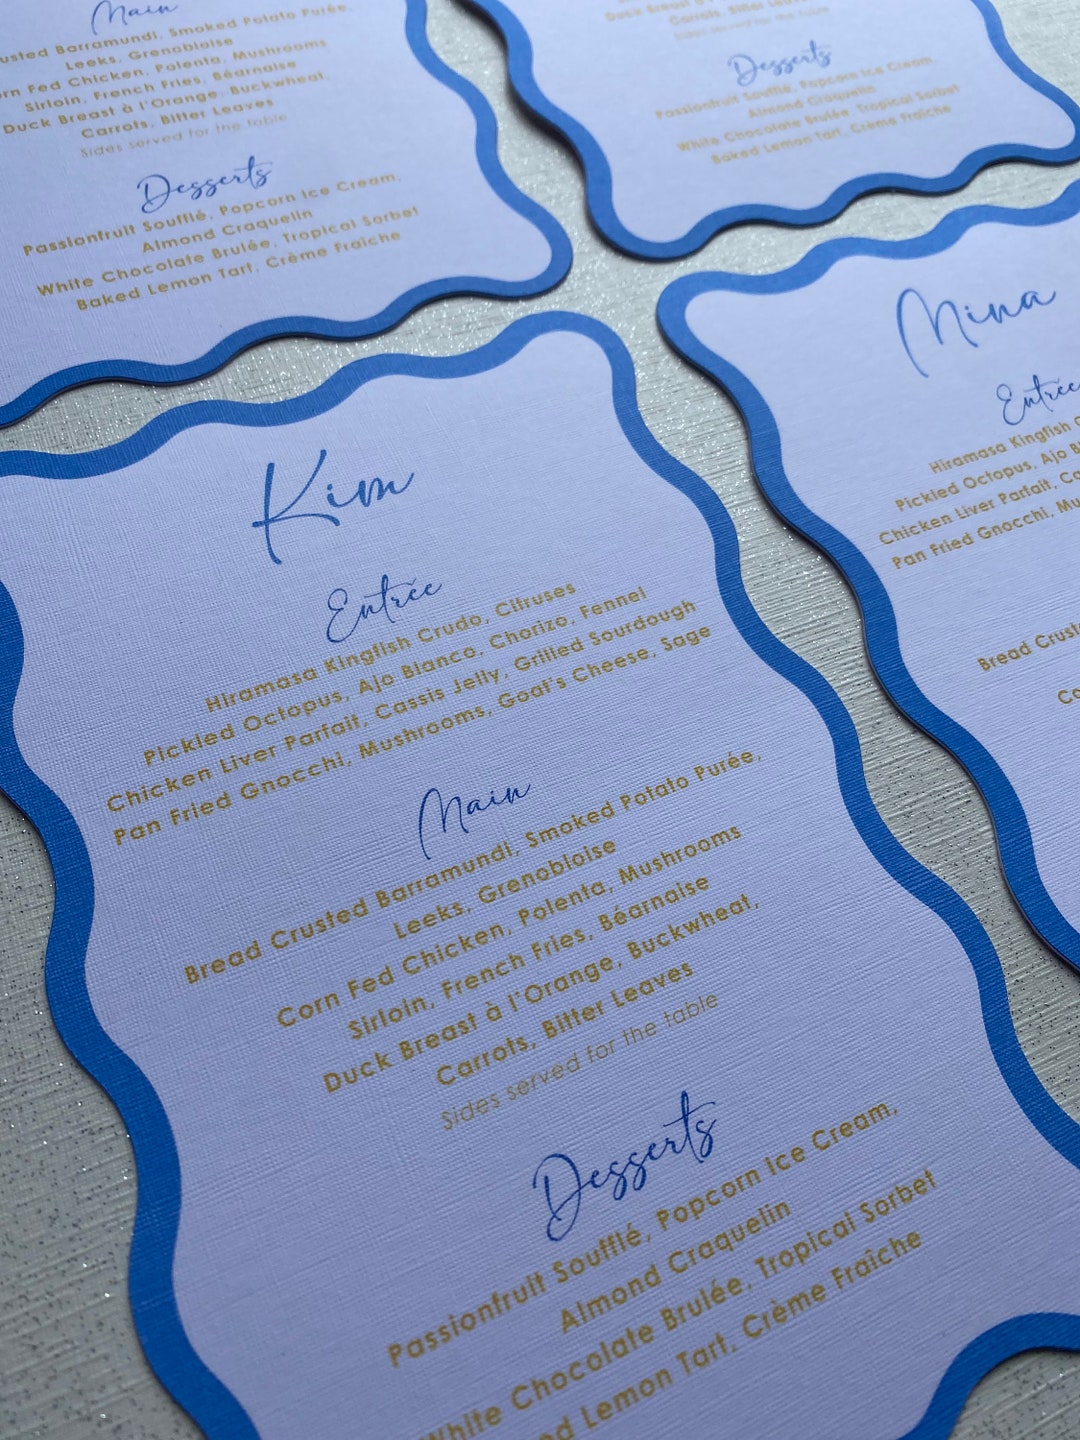 Main
usted Barramundi, Smoked Potato Purée,
Leeks, Grenobloise
rn Fed Chicken, Polenta, Mushrooms
Sirloin, French Fries, Béarnaise
Duck Breast à l'Orange, Buckwheat,
Carrots, Bitter Leaves
Sides served for the table
Desserts
Passionfruit Soufflé, Popcorn Ice Cream,
Almond Craquelin
White Chocolate Brulée, Tropical Sorbet
Baked Lemon Tart, Crème Fraîche
Duck Breast à l'
Carrots, Bitter Leaves
Sides served for the table
Desserts
Passionfruit Soufflé, Popcorn Ice Cream,
Almond Craquelin
White Chocolate Brulée, Tropical Sorbet
Baked Lemon Tart, Crème Fraîche
Kim
Entrée
Hiramasa Kingfish Crudo, Citruses
Pickled Octopus, Ajo Blanco, Chorizo, Fennel
Chicken Liver Parfait, Cassis Jelly, Grilled Sourdough
Pan Fried Gnocchi, Mushrooms, Goat's Cheese, Sage
Main
Bread Crusted Barramundi, Smoked Potato Purée,
Leeks, Grenobloise
Corn Fed Chicken, Polenta, Mushrooms
Sirloin, French Fries, Béarnaise
Duck Breast à l'Orange, Buckwheat,
Carrots, Bitter Leaves
Sides served for the table
Desserts
Passionfruit Soufflé, Popcorn Ice Cream,
Almond Craquelin
White Chocolate Brulée, Tropical Sorbet
ed Lemon Tart, Crème Fraîche
Mina
Entrée
Hiramasa Kingfish C
Pickled Octopus, Ajo Bl
Chicken Liver Parfait, Ca
Pan Fried Gnocchi, Mu
Bread Crusta
Co